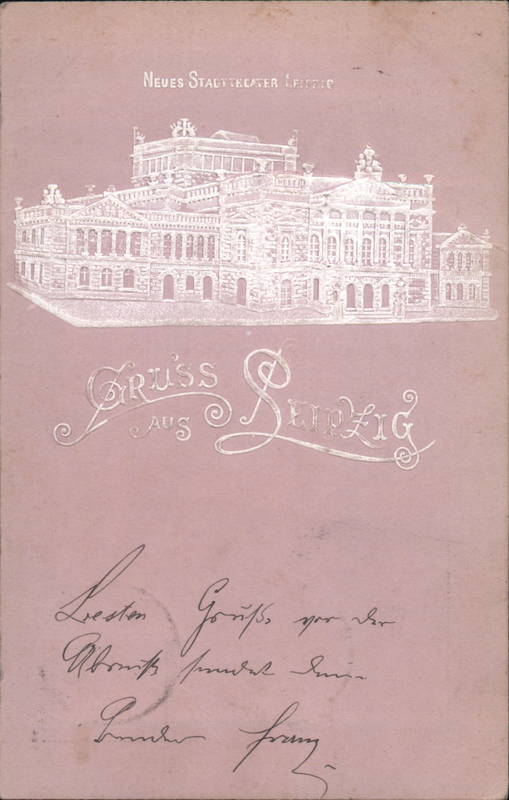 NEUES STADTTHEATER LEIPZIG
GRUSS
AUS LEIPZIG
Besten Gruß vor der
Abreise sendet Dein
Bruder Franz